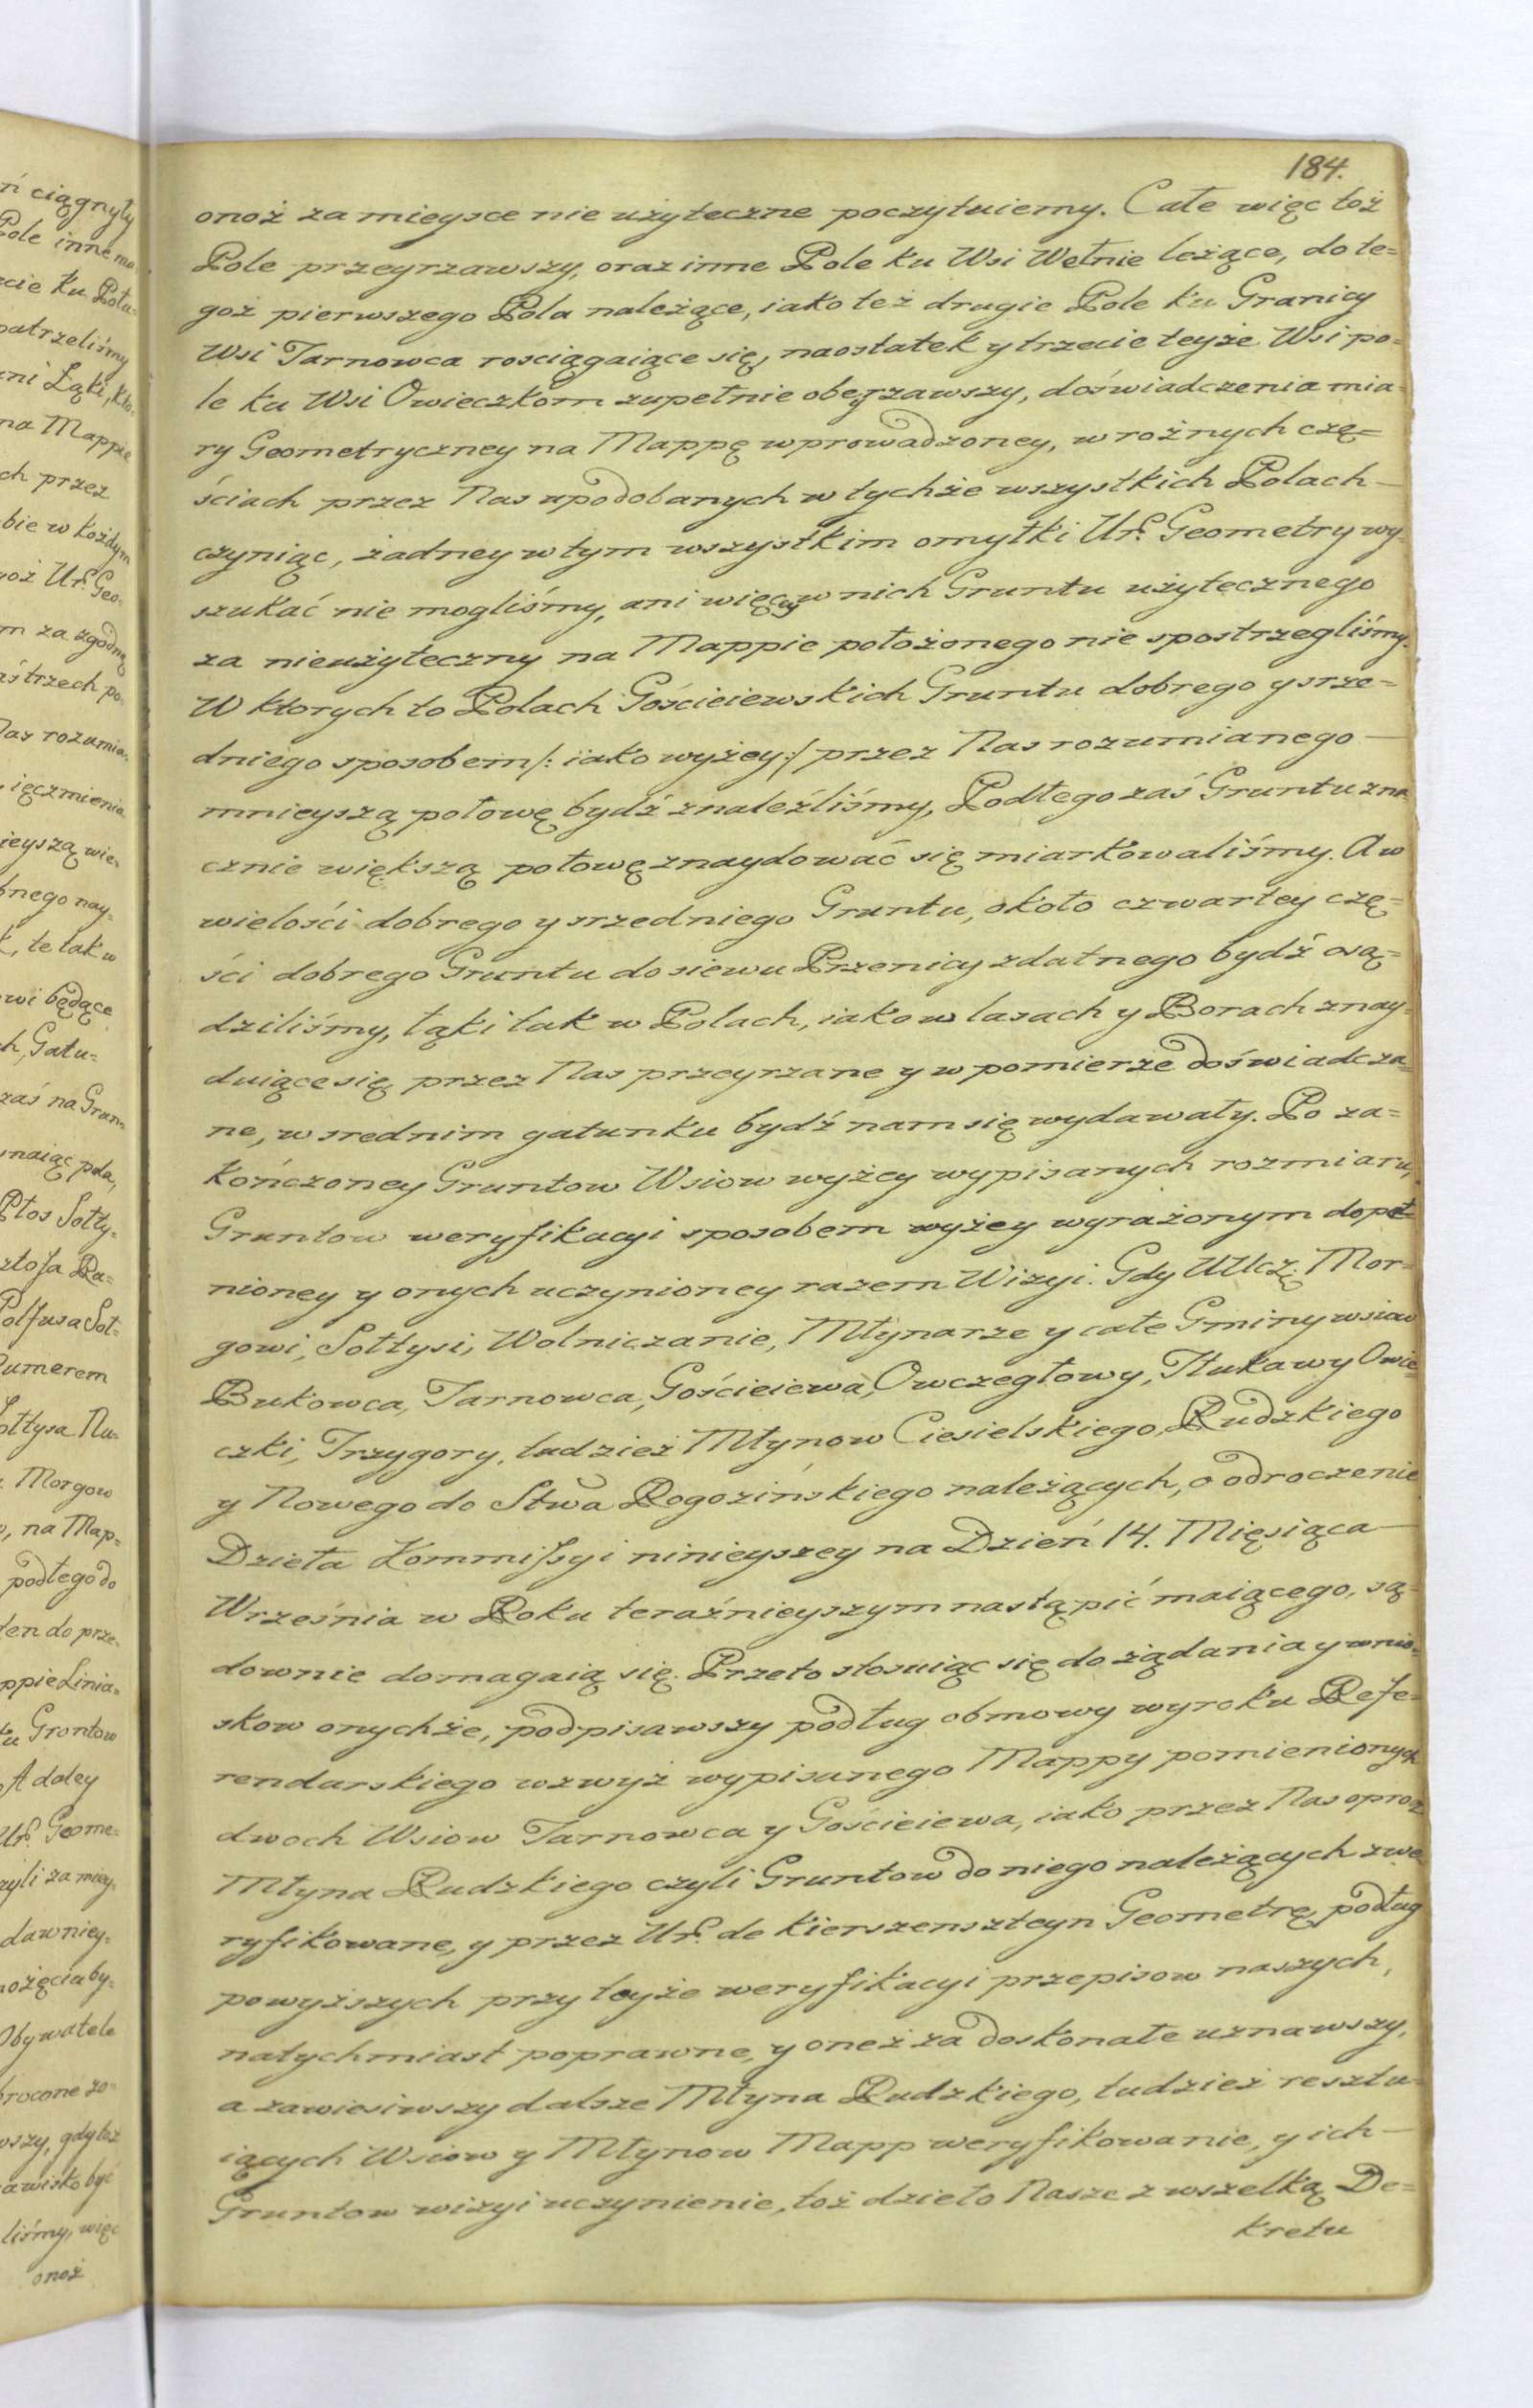 184.
onoż za mieysce nie użyteczne poczytuiemy. Całe więc toż
Pole przeyrzawszy, oraz inne Pole ku Wsi Wełnie leżące, do te=
goż pierwszego Pola należące, iako też drugie Pole ku Granicy
Wsi Tarnowca rosciągaiące się, naostatek y trzecie teyże Wsi po=
le ku Wsi Owieczkom zupełnie obeyrzawszy, doświadczenia mia=
ry Geometryczney na Mappę wprowadzoney, w rożnych czę=
ściach przez Nas upodobanych w tychże wszystkich Polach —
czyniąc, żadney w tym wszystkim omyłki Ur. Geometry wy=
szukać nie mogliśmy, ani więcey w nich Gruntu użytecznego
za nieużyteczny na Mappie położonego nie spostrzegliśmy.
W ktorych to Polach Gościeiewskich Gruntu dobrego y srze=
dniego sposobem /: iako wyżey :/ przez Nas rozumianego —
mnieyszą połowę bydź znaleźliśmy, Podłego zaś Gruntu zna
cznie większą połowę znaydować się miarkowaliśmy. A w
wielości dobrego y srzedniego Gruntu, około czwartey czę=
ści dobrego Gruntu do siewu Przenicy zdatnego bydź osą=
dziliśmy, łąki tak w Polach, iako w lasach y Borach znay=
duiące się przez Nas przeyrzane y w pomierze doświadcza=
ne, w srednim gatunku bydź nam się wydawały. Po za=
kończoney Gruntow Wsiow wyżey wypisanych rozmiaru,
Gruntow weryfikacyi sposobem wyżey wyrażonym dopeł=
nioney y onych uczynioney razem Wizyi. Gdy UUczę: Mor=
gowi, Sołtysi, Wolniczanie, Młynarze y całe Gminy wsiow
Bukowca, Tarnowca, Gościeiewa, Owczegłowy, Tłukawy Owie=
czki, Trzygory, tudzież Młynow Ciesielskiego, Rudzkiego
y Nowego do Stwa Rogozińskiego należących, o odroczenie
Dzieła Kommissyi ninieyszey na Dzień 14. Mięsiąca —
Września w Roku teraźnieyszym nastąpić maiącego, są=
downie domagaią się. Przeto stosuiąc się do żądania y wnio=
skow onychże, podpisawszy podług obmowy wyroku Refe=
rendarskiego wzwyż wypisanego Mappy pomienionych
dwoch Wsiow Tarnowca y Gościeiewa, iako przez Nas oprocz
Młyna Rudzkiego czyli Gruntow do niego należących zwe
ryfikowane, y przez Ur. de Kierszensteyn Geometrę podług
powyższych przy teyże weryfikacyi przepisow naszych,
natychmiast poprawne, y oneż za doskonałe uznawszy,
a zawiesiwszy dalsze Młyna Rudzkiego, tudzież resztu=
iących Wsiow y Młynow Mapp weryfikowanie, y ich —
Gruntow wizyi uczynienie, toż dzieło Nasze z wszelką De=
kretu